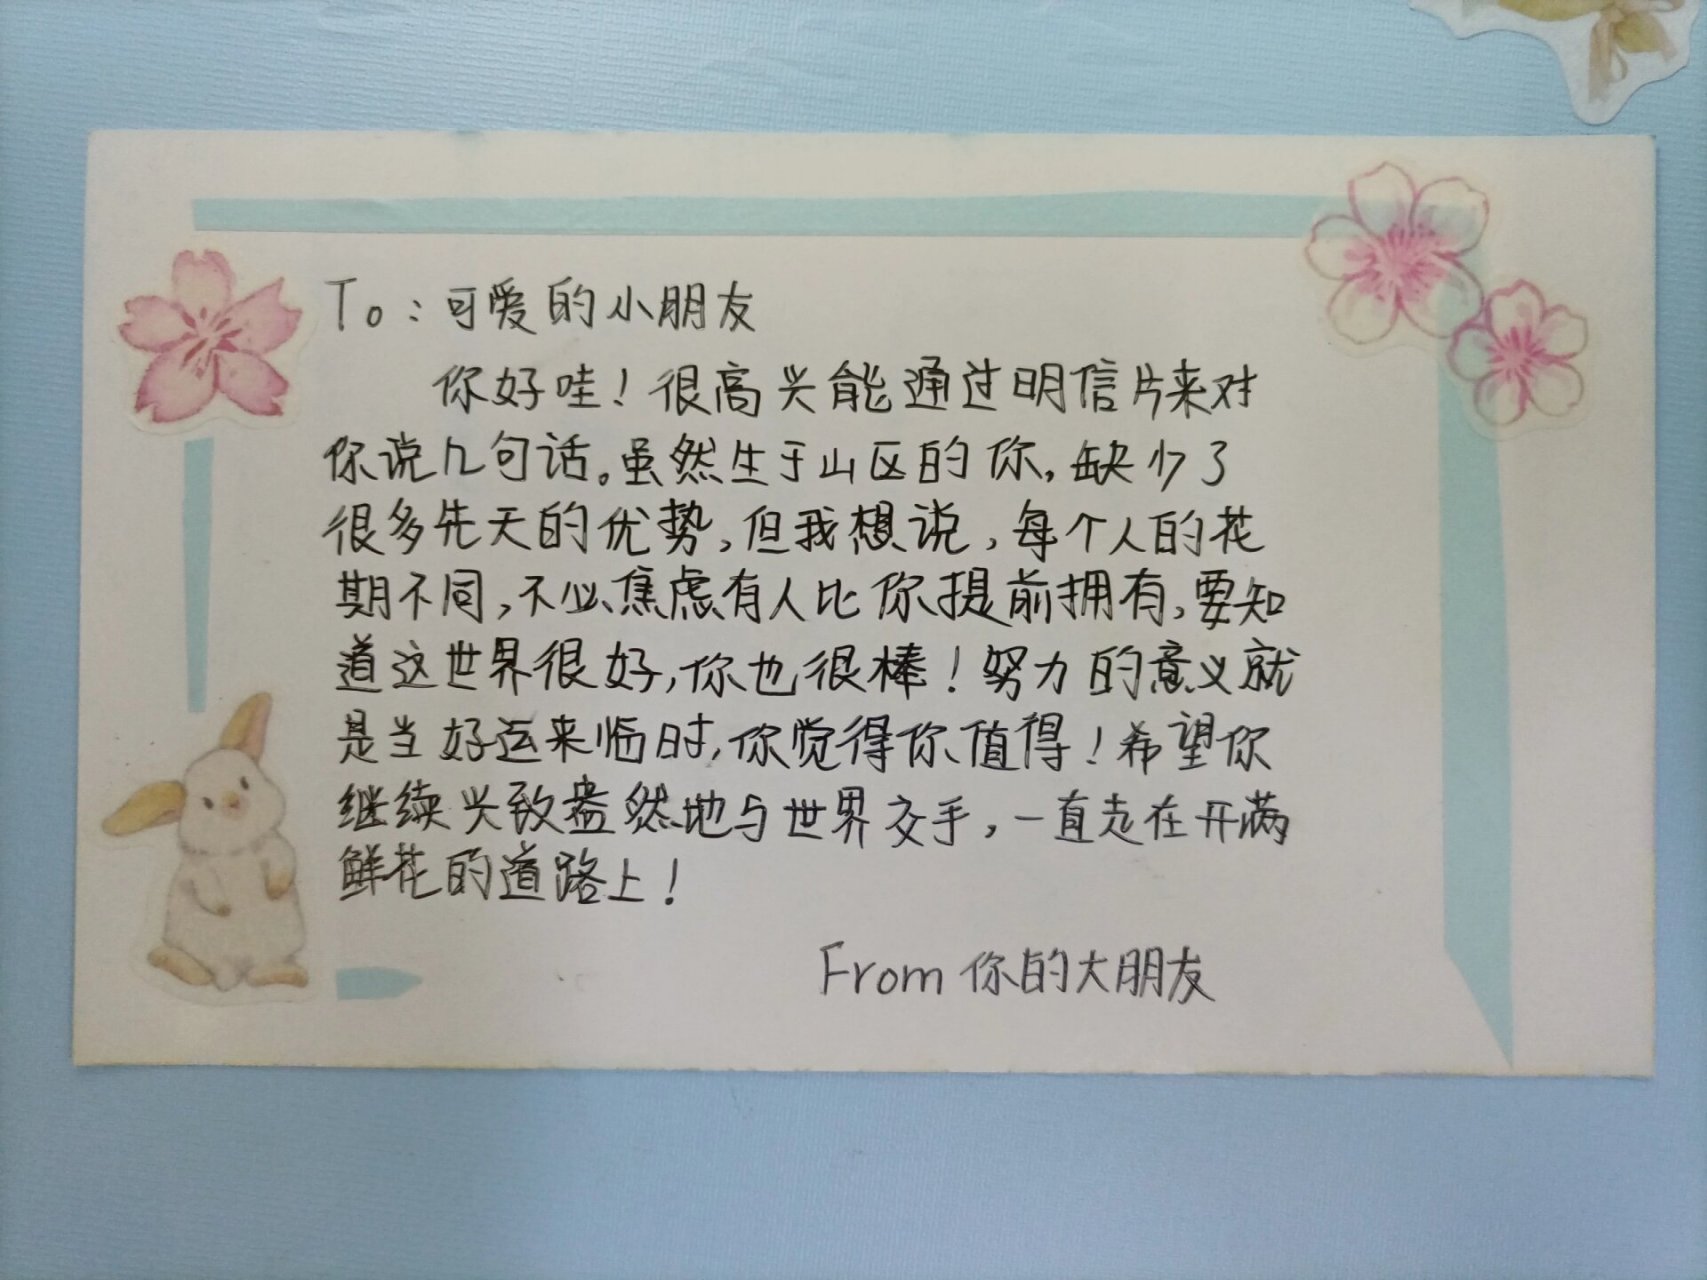 To：可爱的小朋友
你好哇！很高兴能通过明信片来对
你说几句话。虽然生于山区的你，缺少了
很多先天的优势，但我想说，每个人的花
期不同，不必焦虑有人比你提前拥有，要知
道这世界很好，你也很棒！努力的意义就
是当好运来临时，你觉得你值得！希望你
继续兴致盎然地与世界交手，一直走在开满
鲜花的道路上！
From 你的大朋友